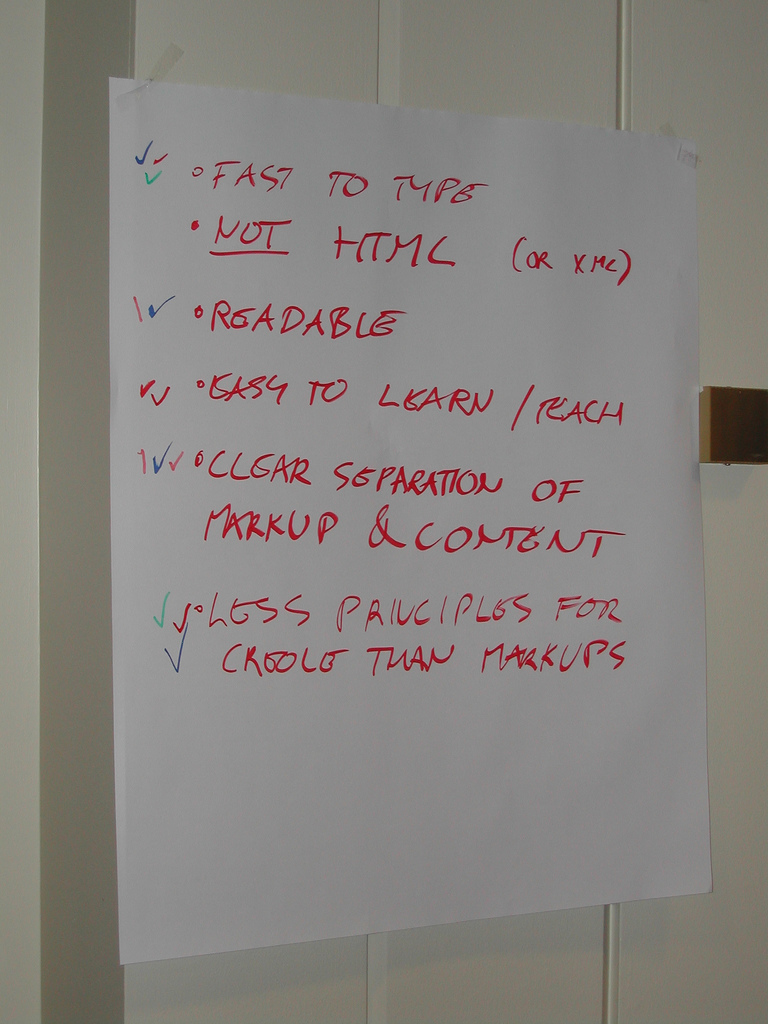 • FAST TO TYPE
• NOT HTML (OR XML)
• READABLE
• EASY TO LEARN / TEACH
• CLEAR SEPARATION OF
MARKUP & CONTENT
• LESS PRINCIPLES FOR
CREOLE THAN MARKUPS